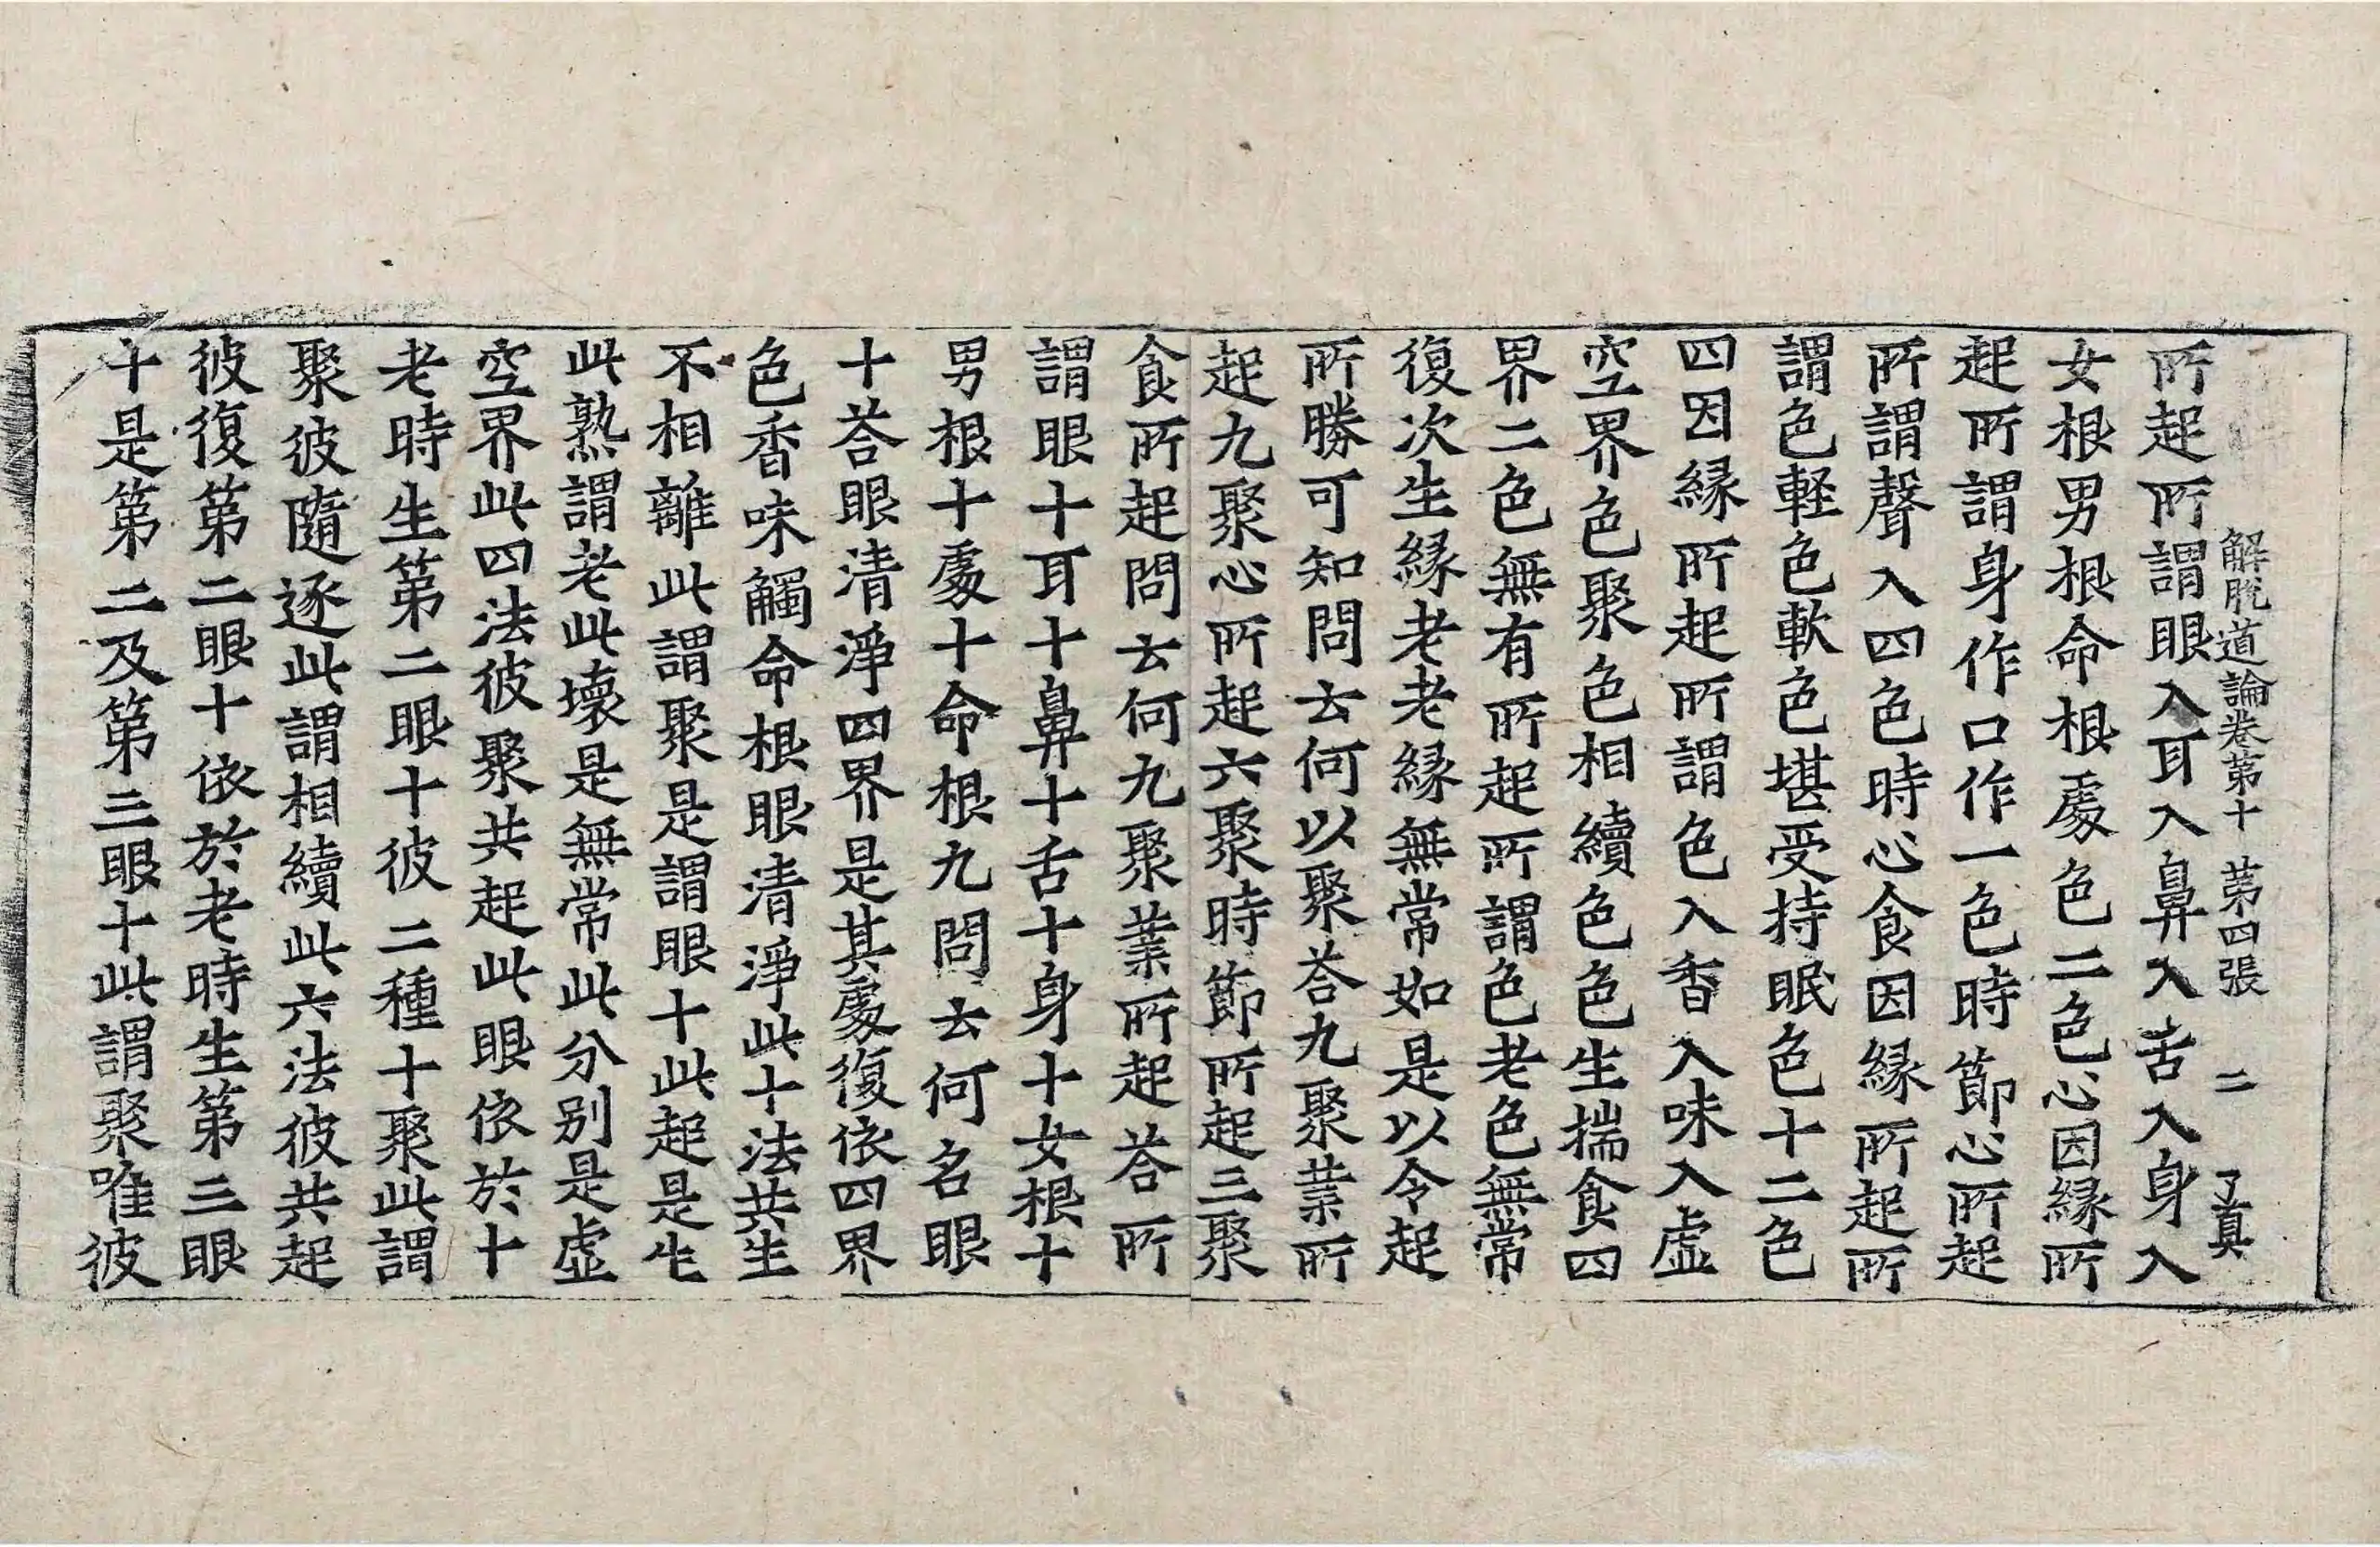 解脫道論卷第十　第四張　二　了真
所起所謂眼入耳入鼻入舌入身入
女根男根命根處色二色心因緣所
起所謂身作口作一色時節心所起
所謂聲入四色時心食因緣所起所
謂色輕色軟色堪受持眠色十二色
四因緣所起所謂色入香入味入虛
空界色聚色相續色色生揣食四
界二色無有所起所謂色老色無常
復次生緣老老緣無常如是以令起
所勝可知問云何以聚荅九聚業所
起九聚心所起六聚時節所起三聚
食所起問云何九聚業所起荅所
謂眼十耳十鼻十舌十身十女根十
男根十處十命根九問云何名眼
十荅眼清淨四界是其處復依四界
色香味觸命根眼清淨此十法共生
不相離此謂聚是謂眼十此起是生
此熟謂老此壞是無常此分别是虛
空界此四法彼聚共起此眼依於十
老時生第二眼十彼二種十聚此謂
聚彼隨逐此謂相續此六法彼共起
彼復第二眼十依於老時生第三眼
十是第二及第三眼十此謂聚唯彼